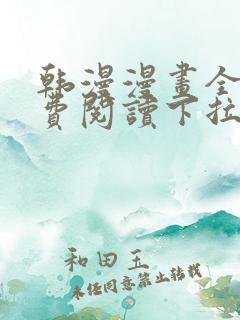 韩漫漫畫全
費閱讀下拉
和田玉
未经同意禁止转载